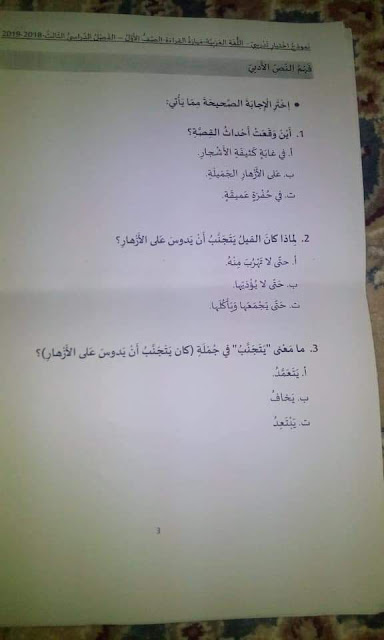 نموذج اختبار تدريبي - اللُّغة العربيّة-مهارة القراءة-الصفّ الأوّل – الفصل الدّراسيّ الثّالث-2018-2019
فَهْمُ النَّصِّ الأَدَبِيِّ
• اِخْتَرِ الْإِجابَةَ الصَّحيحَةَ مِمّا يَأْتي:
1. أَيْنَ وَقَعَتْ أَحْداثُ القِصَّةِ؟
أ. في غابَةٍ كَثيفَةِ الأَشْجارِ.
ب. عَلى الأَزْهارِ الجَميلَةِ.
ت. في حُفْرَةٍ عَميقَةٍ.
2. لِماذا كانَ الفيلُ يَتَجَنَّبُ أَنْ يَدوسَ عَلى الأَزْهارِ؟
أ. حتّى لا تَهْرُبَ مِنْهُ.
ب. حَتّى لا يُؤْذِيَها.
ت. حَتّى يَجْمَعَها وَيَأْكُلَها.
3. ما مَعْنى "يَتَجَنَّبُ" في جُمْلَةِ (كان يَتَجَنَّبُ أَنْ يَدوسَ عَلى الأَزْهارِ)؟
أ. يَتَعَمَّدُ.
ب. يَخافُ
ت. يَبْتَعِدُ
3